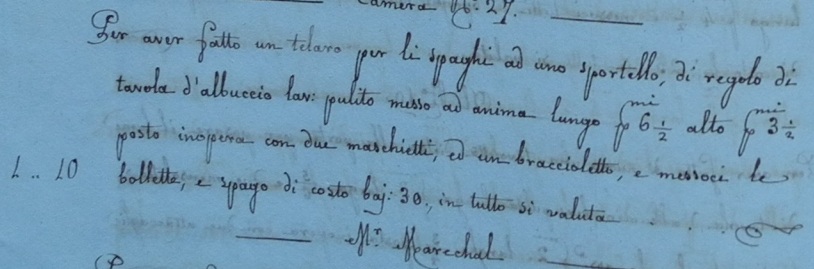 Camera N: 27.
Per aver fatto un telaro per li spaghi ad uno sportello, di regolo di
tavola d'albuccio lav: pulito messo ad anima lungo pmi 6 1/2 alto pmi 3 1/2
posto inopera con due maschietti, ed un braccioletto, e messoci le
1 .. 10 bollette, e spago di costo baj: 30., in tutto si valuta . . .
Mr. Marechal